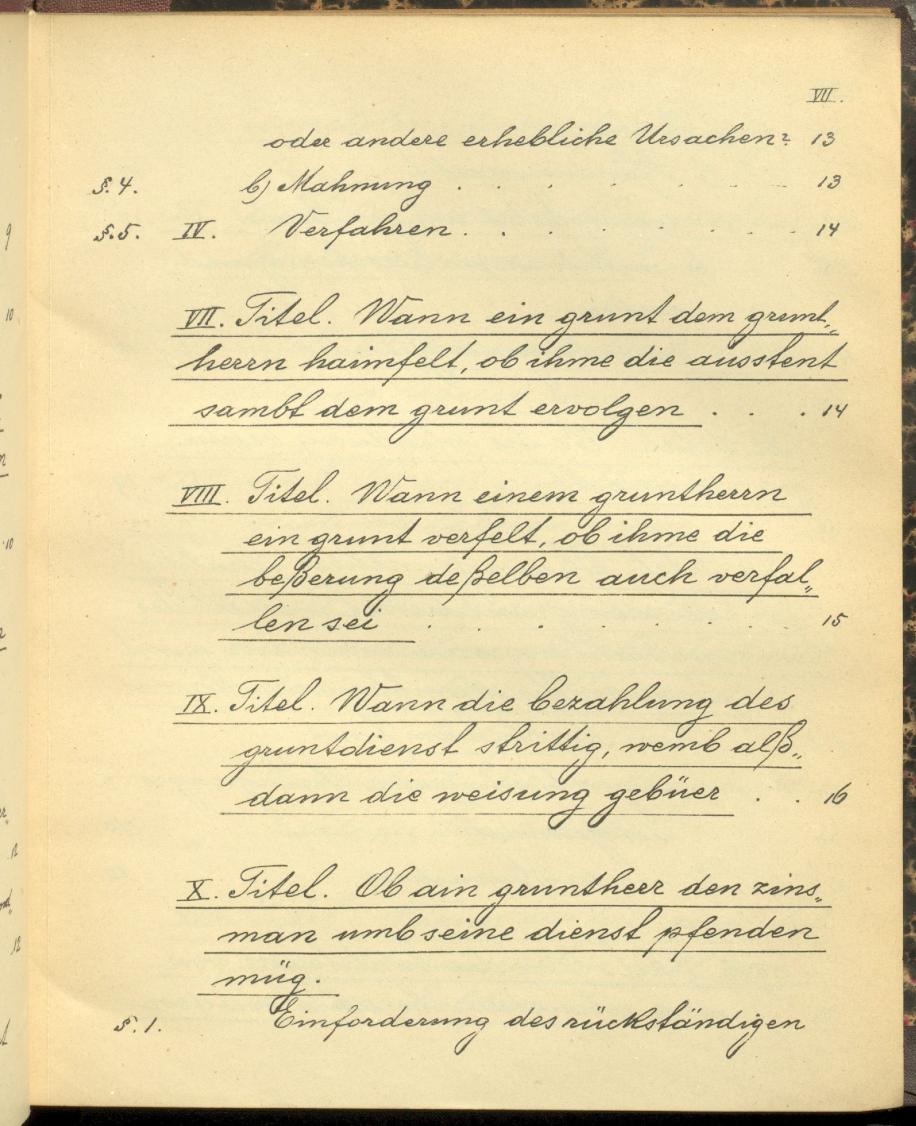 VII.
oder andere erhebliche Ursachen? 13
§. 4. b) Mahnung . . . . . . . 13
§. 5. IV. Verfahren . . . . . . . 14
VII. Titel. Wann ein grunt dem grunt„
herrn haimfelt, ob ihme die ausstent
sambt dem grunt ervolgen . . . 14
VIII. Titel. Wann einem gruntherrn
ein grunt verfelt, ob ihme die
beßerung deßelben auch verfal„
len sei . . . . . . . 15
IX. Titel. Wann die bezahlung des
gruntdienst strittig, wemb alß„
dann die weisung gebüer . . 16
X. Titel. Ob ain gruntherr den zins„
man umb seine dienst pfenden
müg.
§. 1. Einforderung des rückständigen